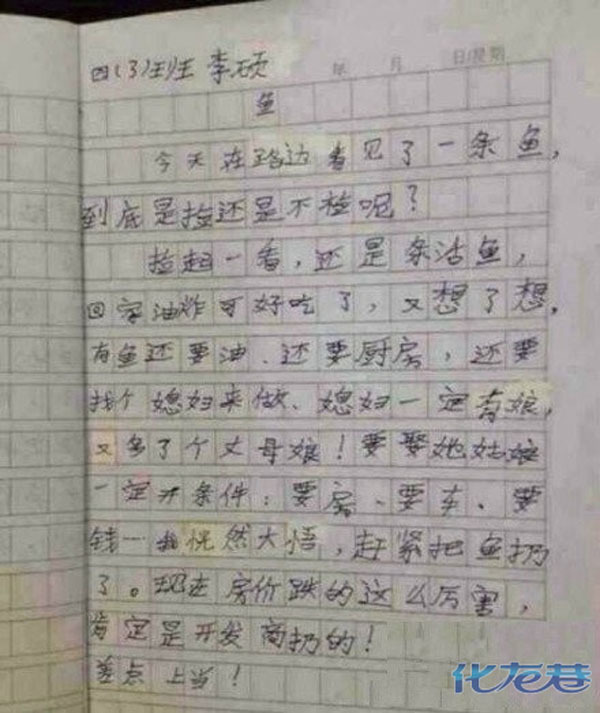 四(3)班 李硕
年 月 日 星期
鱼
今天在路边看见了一条鱼，
到底是捡还是不捡呢？
捡起一看，还是条活鱼，
回家油炸可好吃了，又想了想，
有鱼还要油、还要厨房，还要
找个媳妇来做、媳妇一定有娘，
又多了个丈母娘！要娶她姑娘
一定开条件：要房、要车、要
钱…我恍然大悟，赶紧把鱼扔
了。现在房价跌的这么厉害，
肯定是开发商扔的！
差点上当！
化龙巷